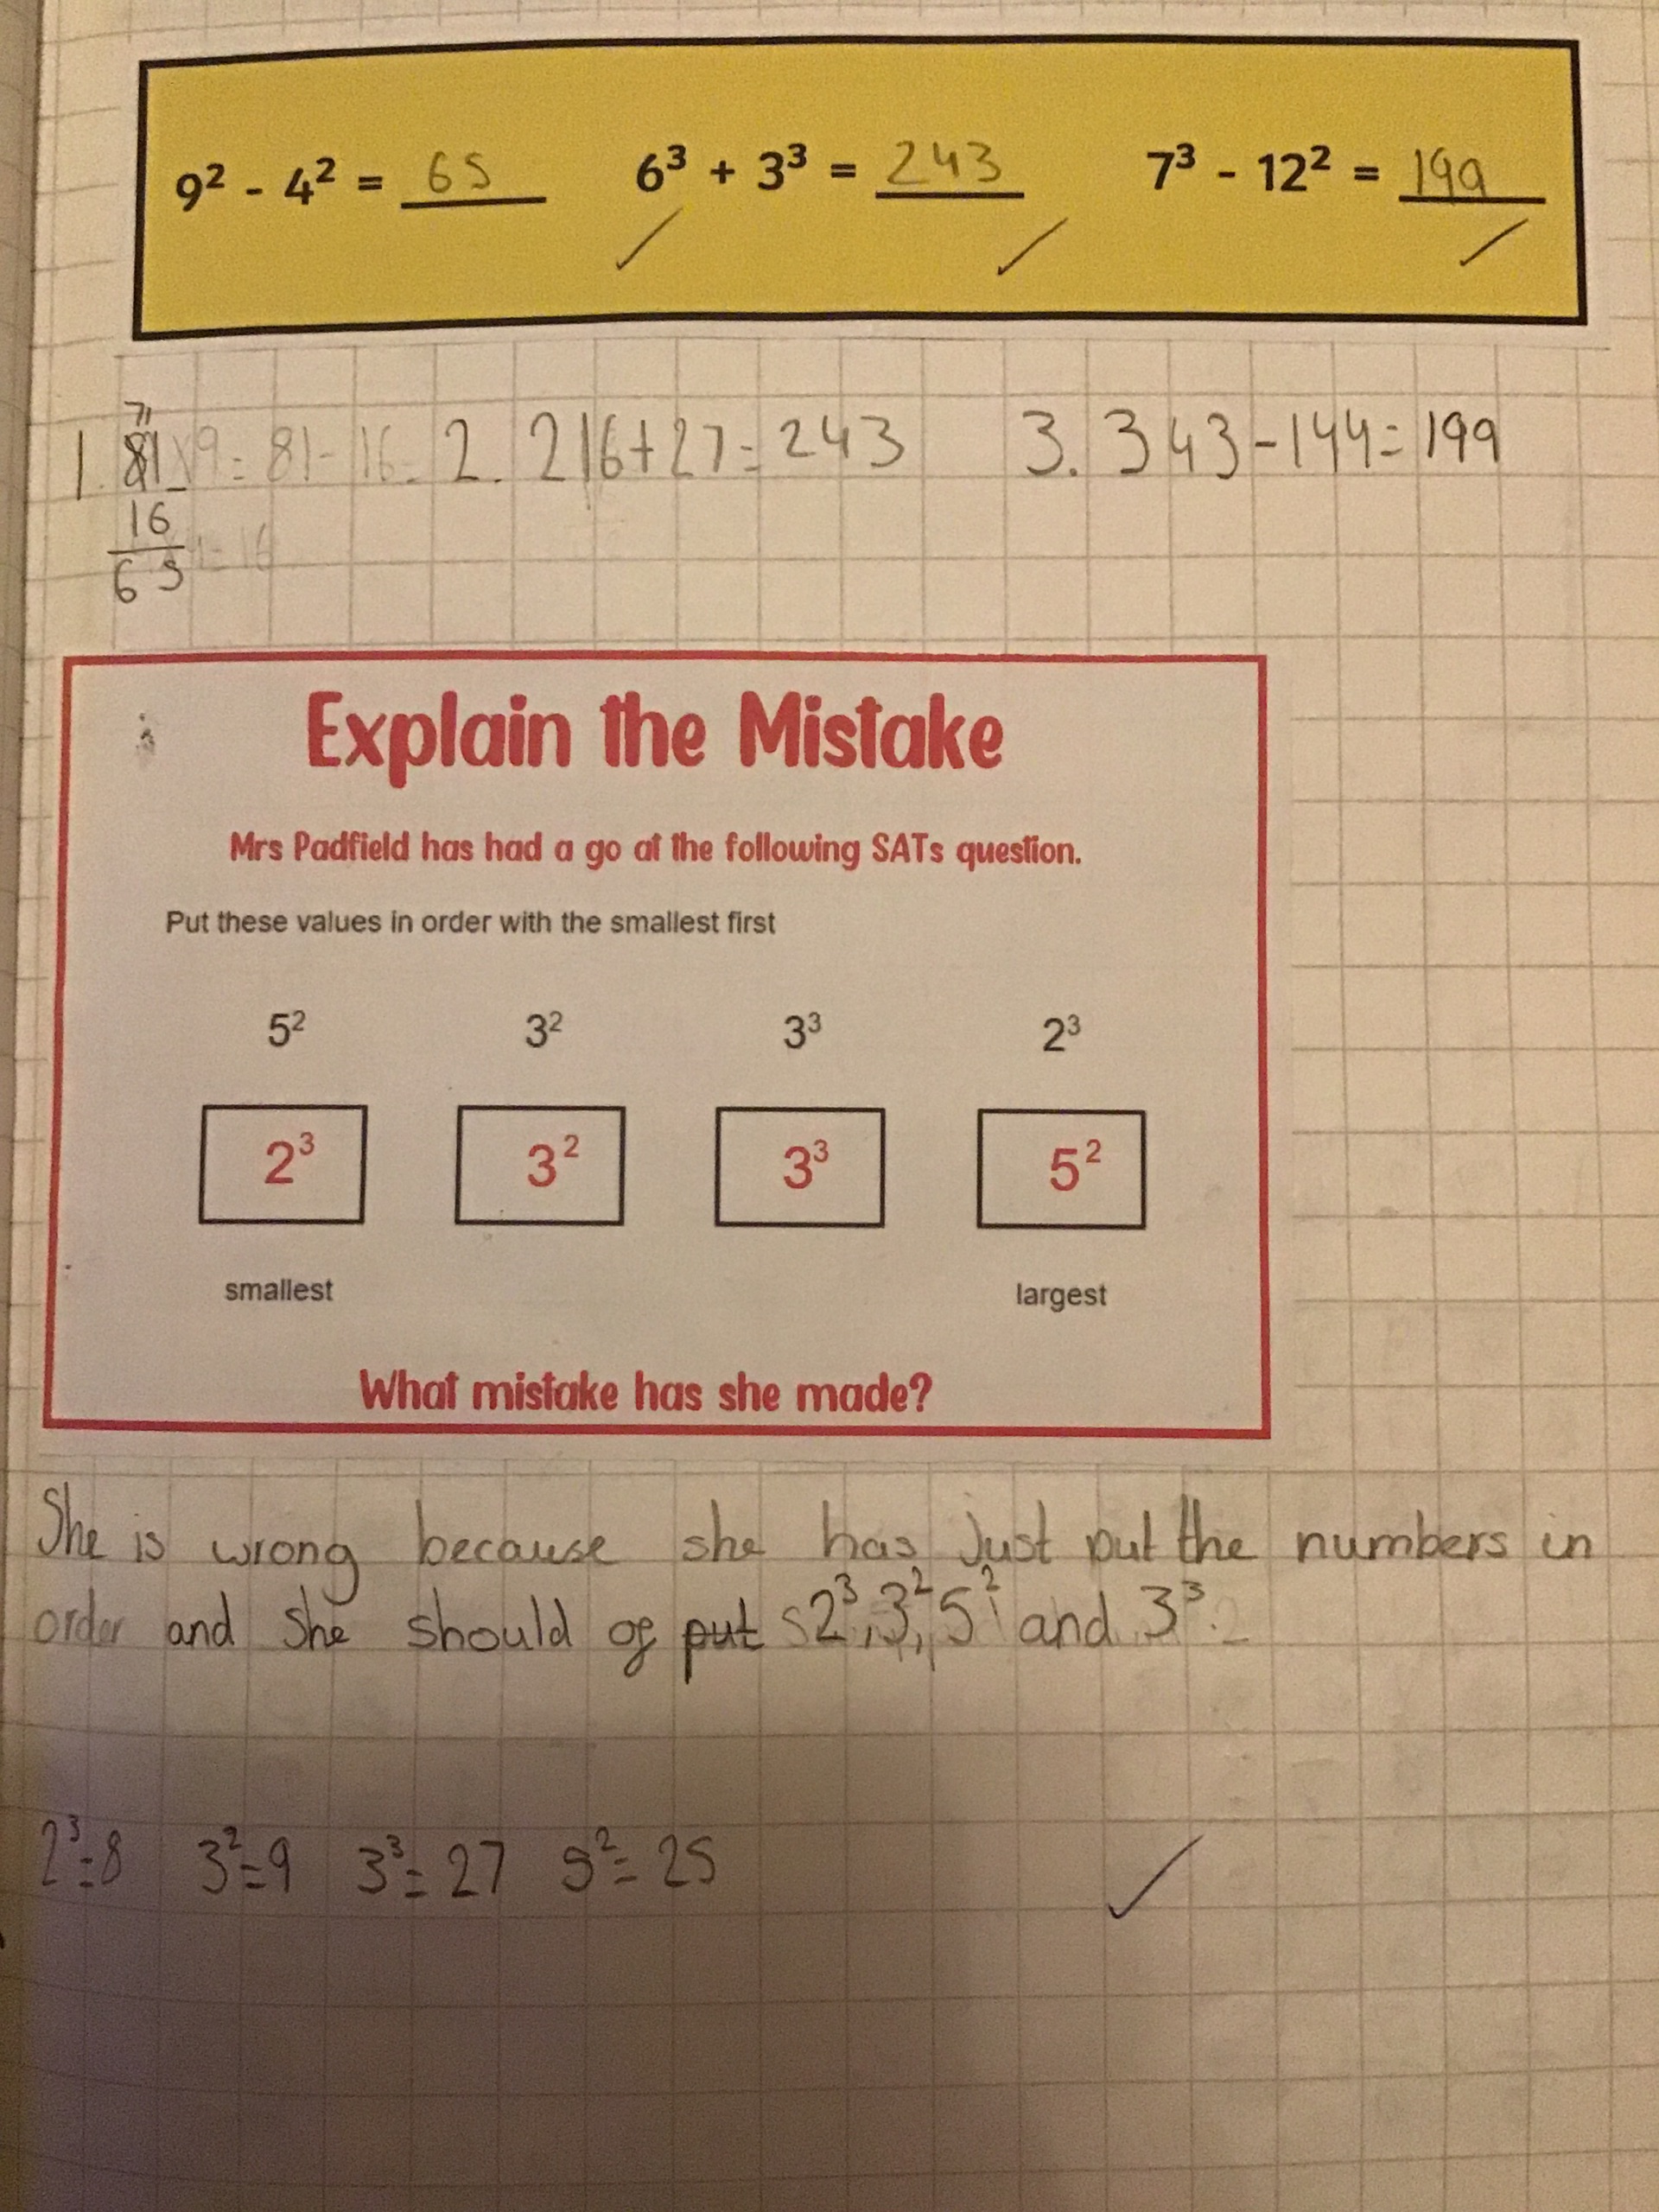 9² - 4² = 65 6³ + 3³ = 243 7³ - 12² = 199
1. 81 - 16 65
2. 216+27=243
3. 343-144=199
Explain the Mistake
Mrs Padfield has had a go at the following SATs question.
Put these values in order with the smallest first
5² 3² 3³ 2³
2³ 3² 3³ 5²
smallest largest
What mistake has she made?
She is wrong because she has Just put the numbers in
order and She should of put 2³, 3², 5² and 3³.
2³=8 3²=9 3³=27 5²=25